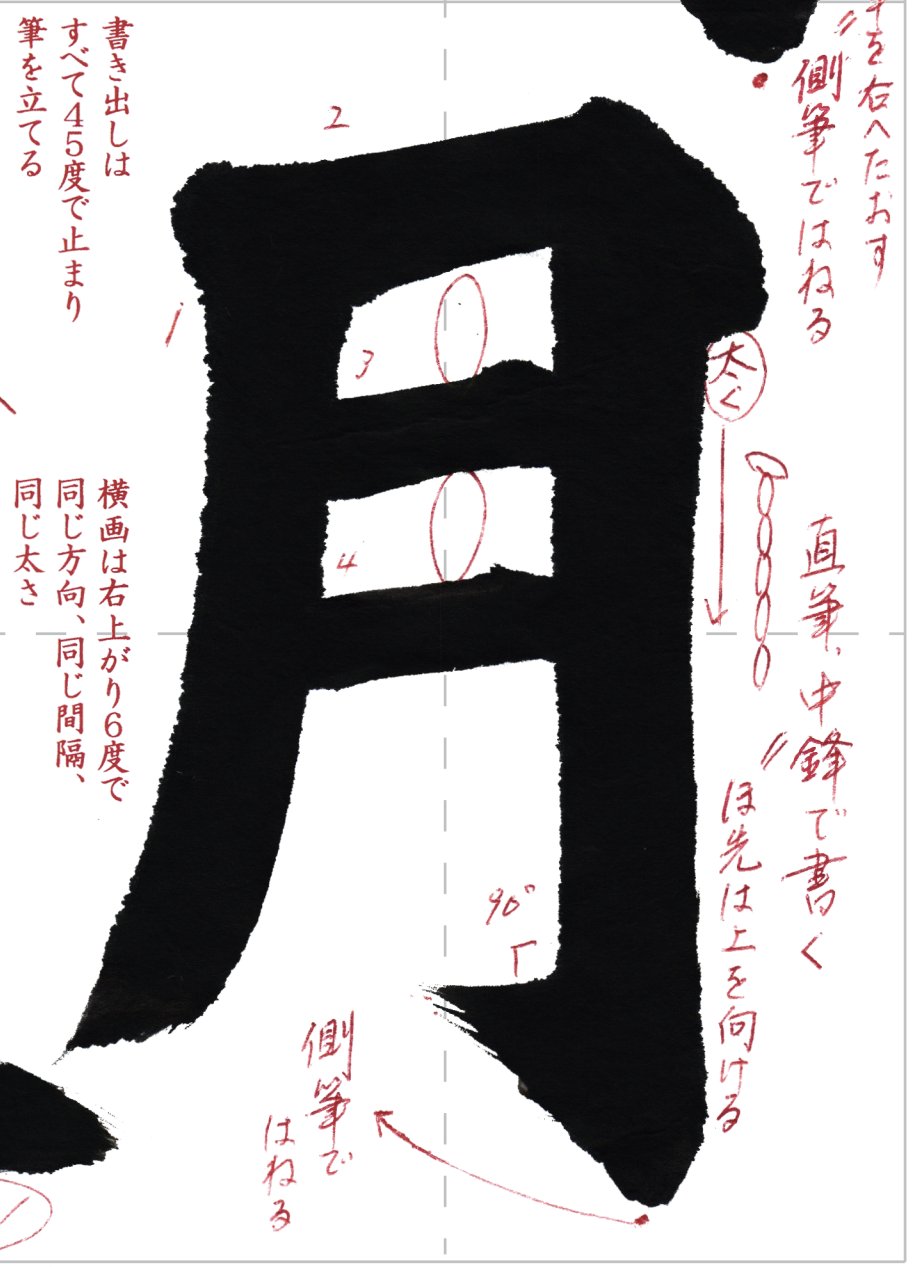 を右へたおす
側筆ではねる
太く
直筆、中鋒で書く
ほ先は上を向ける
2
1
3
4
90°
側筆で
はねる
月
書き出しは
すべて45度で止まり
筆を立てる
横画は右上がり6度で
同じ方向、同じ間隔、
同じ太さ